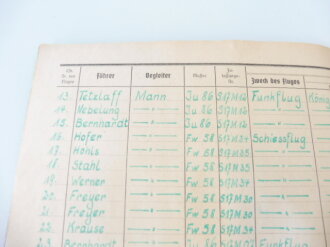 Lfd. Nr. der Flüge Führer Begleiter Muster Zulassungs-Nr. Zweck des Fluges
13. Tetzlaff Mann Ju 86 S17M16 Funkflug
14. Nebelung " Ju 86 S17M16 "
15. Bernhardt " Ju 86 S17M16 "
16. Hofer " Fw 58 S17M34 Schiessflug
17. " Fw 58 S17M35 "
18. Stahl " Fw 58 S17M35 "
19. Werner " Fw 58 S17M30 "
20. Freyer " Fw 58 S17M30 "
21. Freyer " Fw 58 S17M30 "
22. Krause " Fw 58 S17M34 "
23. Bernhardt Funkflug